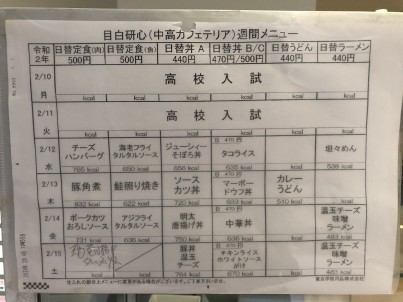 目白研心(中高カフェテリア)週間メニュー
令和2年 日替定食(肉) 500円 日替定食(魚) 500円 日替丼 A 440円 日替丼 B/C 470円/500円 日替うどん 440円 日替ラーメン 440円
2/10 月 高校入試
kcal kcal kcal kcal kcal kcal
2/11 火 高校入試
kcal kcal kcal kcal kcal kcal
2/12 水 チーズハンバーグ 海老フライタルタルソース ジューシーそぼろ丼 タコライス 坦々めん
2/13 木 豚角煮 鮭照り焼き ソースカツ丼 マーボードウフ丼 カレーうどん
2/14 金 ポークカツおろしソース アジフライタルタルソース 明太唐揚げ丼 中華丼 温玉チーズ味噌ラーメン
2/15 豚丼温玉チーズ チキンライスホワイトソースがけ 温玉チーズ味噌ラーメン